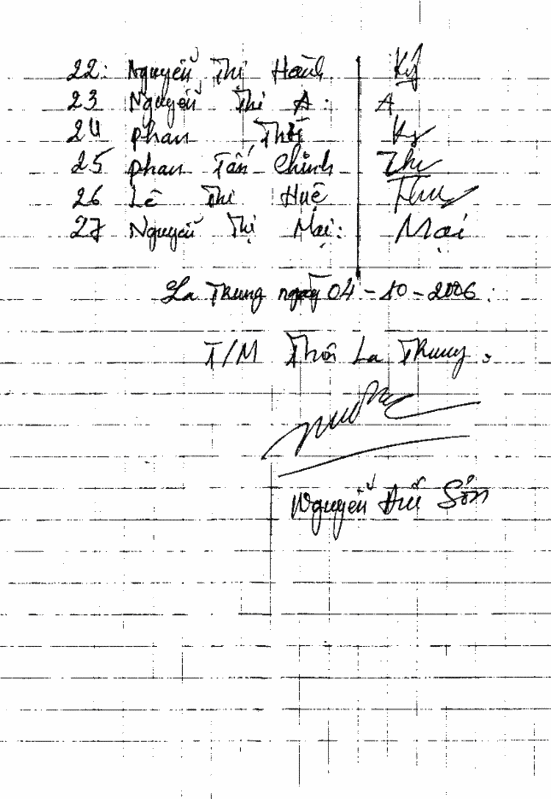 22: Nguyễn Thị Hạnh Ký
23 Nguyễn Thi A: A
24 phan Thế Ky
25 phan Tấn Chỉnh
26 Lê Thi Huệ Thu
27 Nguyễn Thị Mại: Mại
La Trung ngày 04-10-2006:
T/M Thôn La Trung.
Nguyễn Hữu Sơn